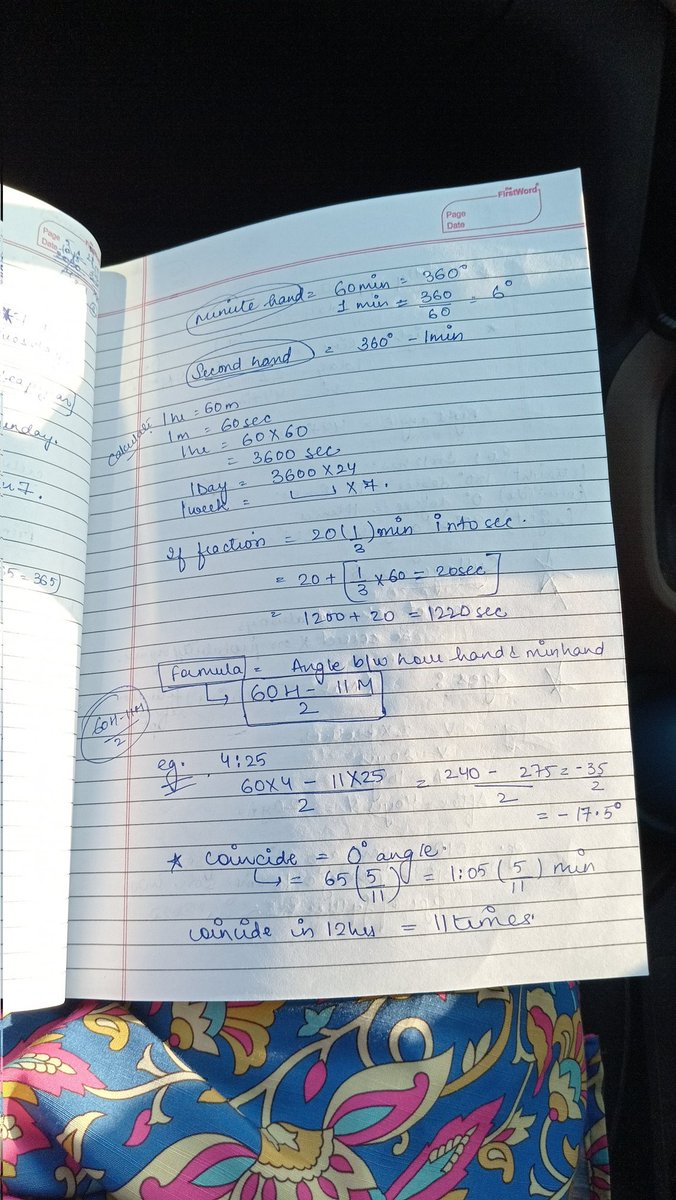 FirstWord
Page
Date
Minute hand = 60min = 360°
1 min = 360/60 = 6°
Second hand = 360° - 1min
Calculate: 1hr = 60m
1m = 60sec
1hr = 60×60
= 3600 sec
1Day = 3600×24
1week = ×7.
If fraction = 20(1/3)min into sec.
= 20 + [1/3 ×60 = 20sec]
= 1200 + 20 = 1220sec
Formula = Angle b/w hour hand & minhand
60H - 11M / 2
60H-11M / 2
eg. 4:25
60×4 - 11×25 / 2 = 240 - 275 / 2 = -35/2
= -17.5°
* Coincide = 0° angle.
= 65(5/11) = 1:05(5/11) min
coincide in 12hrs = 11times.
Page
Date
unday.
5=365